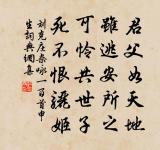 君父如天地
雖逃安所之
可憐共世子
死不恨驪姬
劉克庄杂咏一百首申
生詞典網集